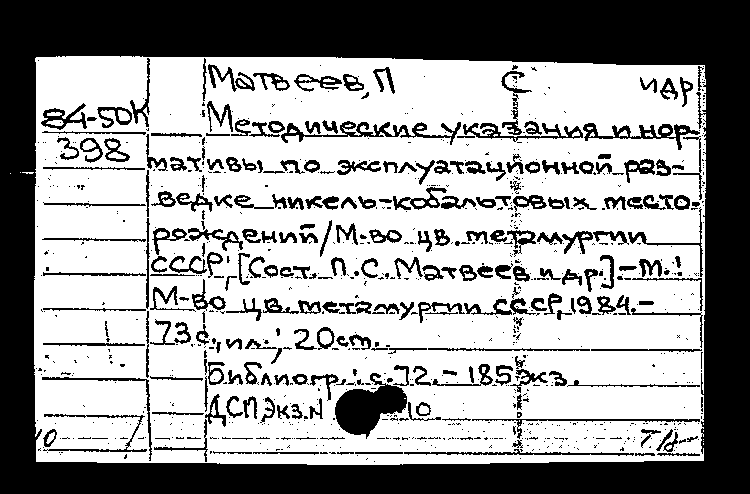 Матвеев, П С и др.
84-50К Методические указания и нор-
398 мативы по эксплуатационной раз-
ведке никель-кобальтовых место-
рождений/М-во цв. метамургии
СССР; [Сост. П.С. Матвеев и др.].-М.:
М-во цв. метамургии СССР, 1984.-
73с., ил.; 20см.
Библиогр.: с.72.- 185 экз.
ДСП, Экз.N 10.